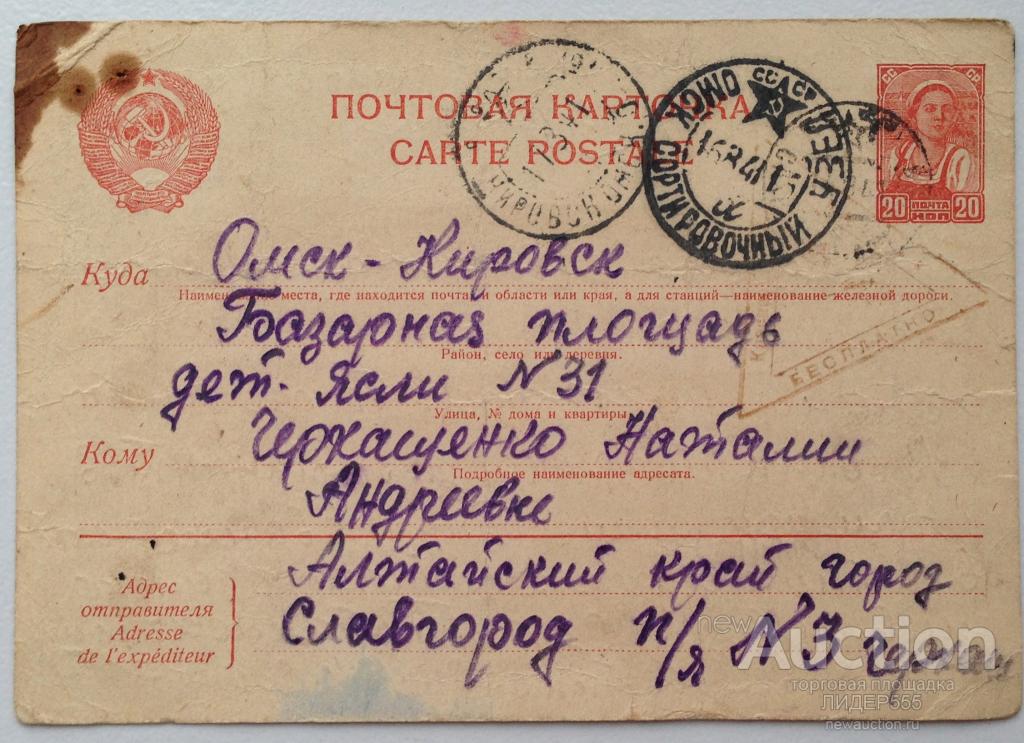 СС СР
ПОЧТОВАЯ КАРТОЧКА
CARTE POSTALE
ПОЧТА
20 КОП 20
ОМСК
СОРТИРОВОЧНЫЙ
КИРОВСК ОМСК.
Куда Омск - Кировск
Наименование места, где находится почта, и области или края, а для станций—наименование железной дороги.
Базарная площадь
Район, село или деревня.
дет. ясли N 31
Улица, № дома и квартиры.
БЕСПЛАТНО
Кому Наталии
Подробное наименование адресата.
Андриевне
Адрес
отправителя
Adresse
de l'expéditeur
Алтайский край город
Славгород п/я N 3
newAuction
торговая площадка
ЛИДЕР555
newauction.ru